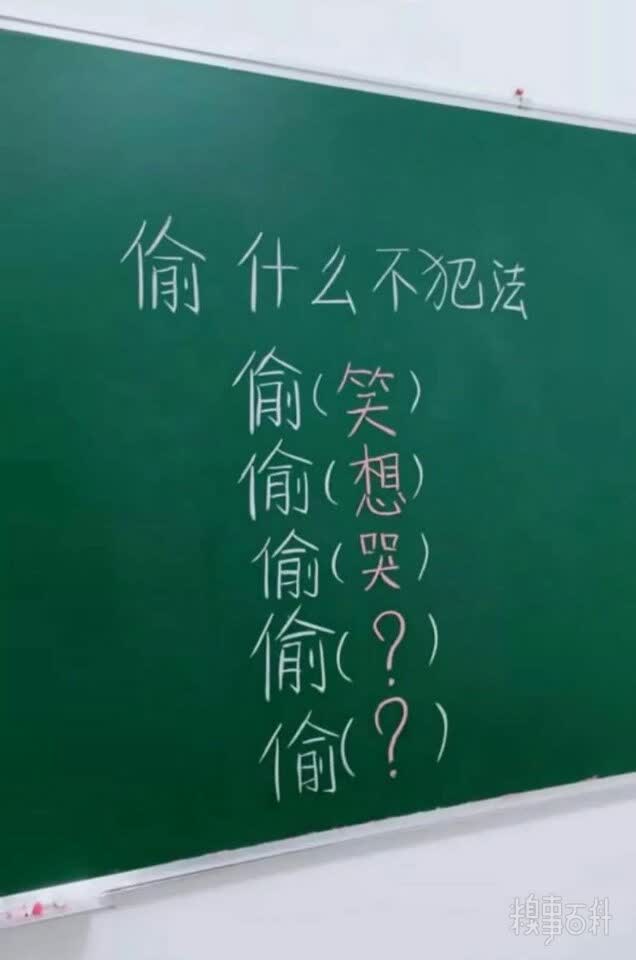 偷什么不犯法
偷(笑)
偷(想)
偷(哭)
偷(?)
偷(?)
糗事百科